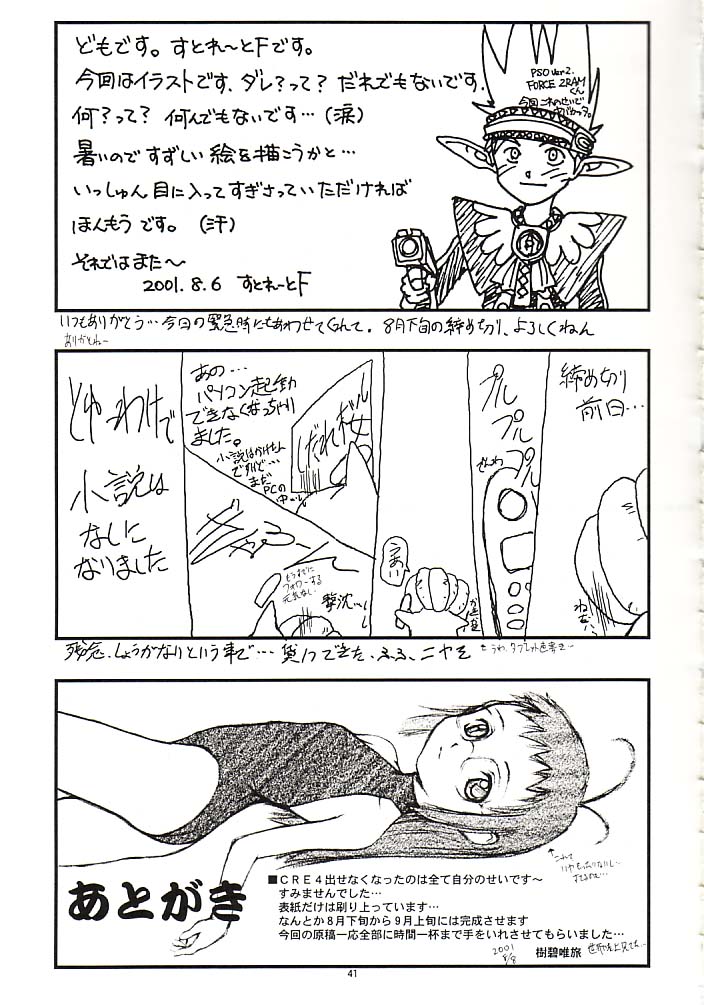 どもです。すとれーとFです。
今回はイラストです、ダレ?って? だれでもないです。
何?って? 何んでもないです…(涙)
暑いのですずしい絵を描こうかと…
いっしゅん目に入ってすぎさっていただければ
ほんもうです。(汗)
それではまた〜
2001.8.6 すとれーとF
PSO ver2.
FORCE 2RAM
くん
今回これのせいで
ヤバカッタ。
いつもありがとう…今回の緊急時にもあわせてくれて。8月下旬の締め切り、よろしくねん
ありがとねー
締め切り
前日…
プル
プル
プル
でんわ
あの…
パソコン起動
できなくなっちゃい
ました。
小説はかけたん
ですけど…
まだ
PCの
中…
しだれ桜
撃沈…
もうすでに
フォローする
元気ない
とゆーわけで
小説は
なしに
なりました
残念、しょうがないという事で…
あとがき
■CRE4出せなくなったのは全て自分のせいです〜
すみませんでした…
表紙だけは刷り上っています…
なんとか8月下旬から9月上旬には完成させます
今回の原稿一応全部に時間一杯まで手をいれさせてもらいました…
2001
8/8
樹碧唯旅
41